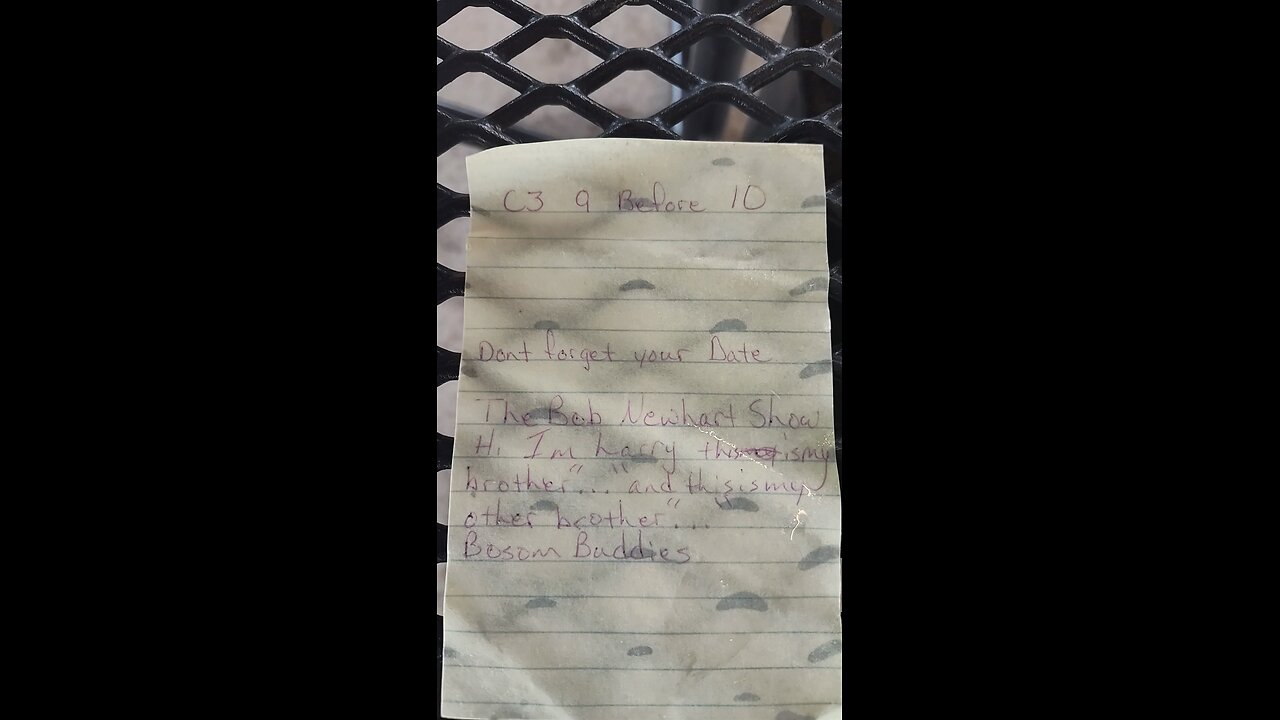 C3 9 Before 10
Dont forget your Date
The Bob Newhart Show
Hi I'm harry this is my
brother"..." and this is my
other brother"..."
Bosom Buddies